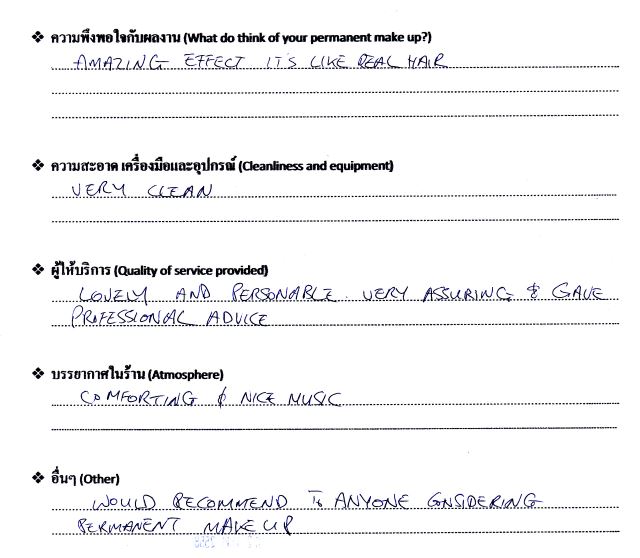 ❖ ความพึงพอใจกับผลงาน (What do think of your permanent make up?)
AMAZING EFFECT IT'S LIKE REAL HAIR
❖ ความสะอาด เครื่องมือและอุปกรณ์ (Cleanliness and equipment)
VERY CLEAN
❖ ผู้ให้บริการ (Quality of service provided)
LOVELY AND PERSONABLE. VERY ASSURING & GAVE
PROFESSIONAL ADVICE
❖ บรรยากาศในร้าน (Atmosphere)
COMFORTING & NICE MUSIC
❖ อื่นๆ (Other)
WOULD RECOMMEND TO ANYONE CONSIDERING
PERMANENT MAKE UP